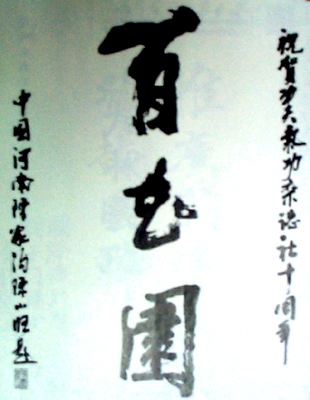 祝賀功夫氣功杂誌社十周年
百花園
中國河南陳家沟陳小旺题